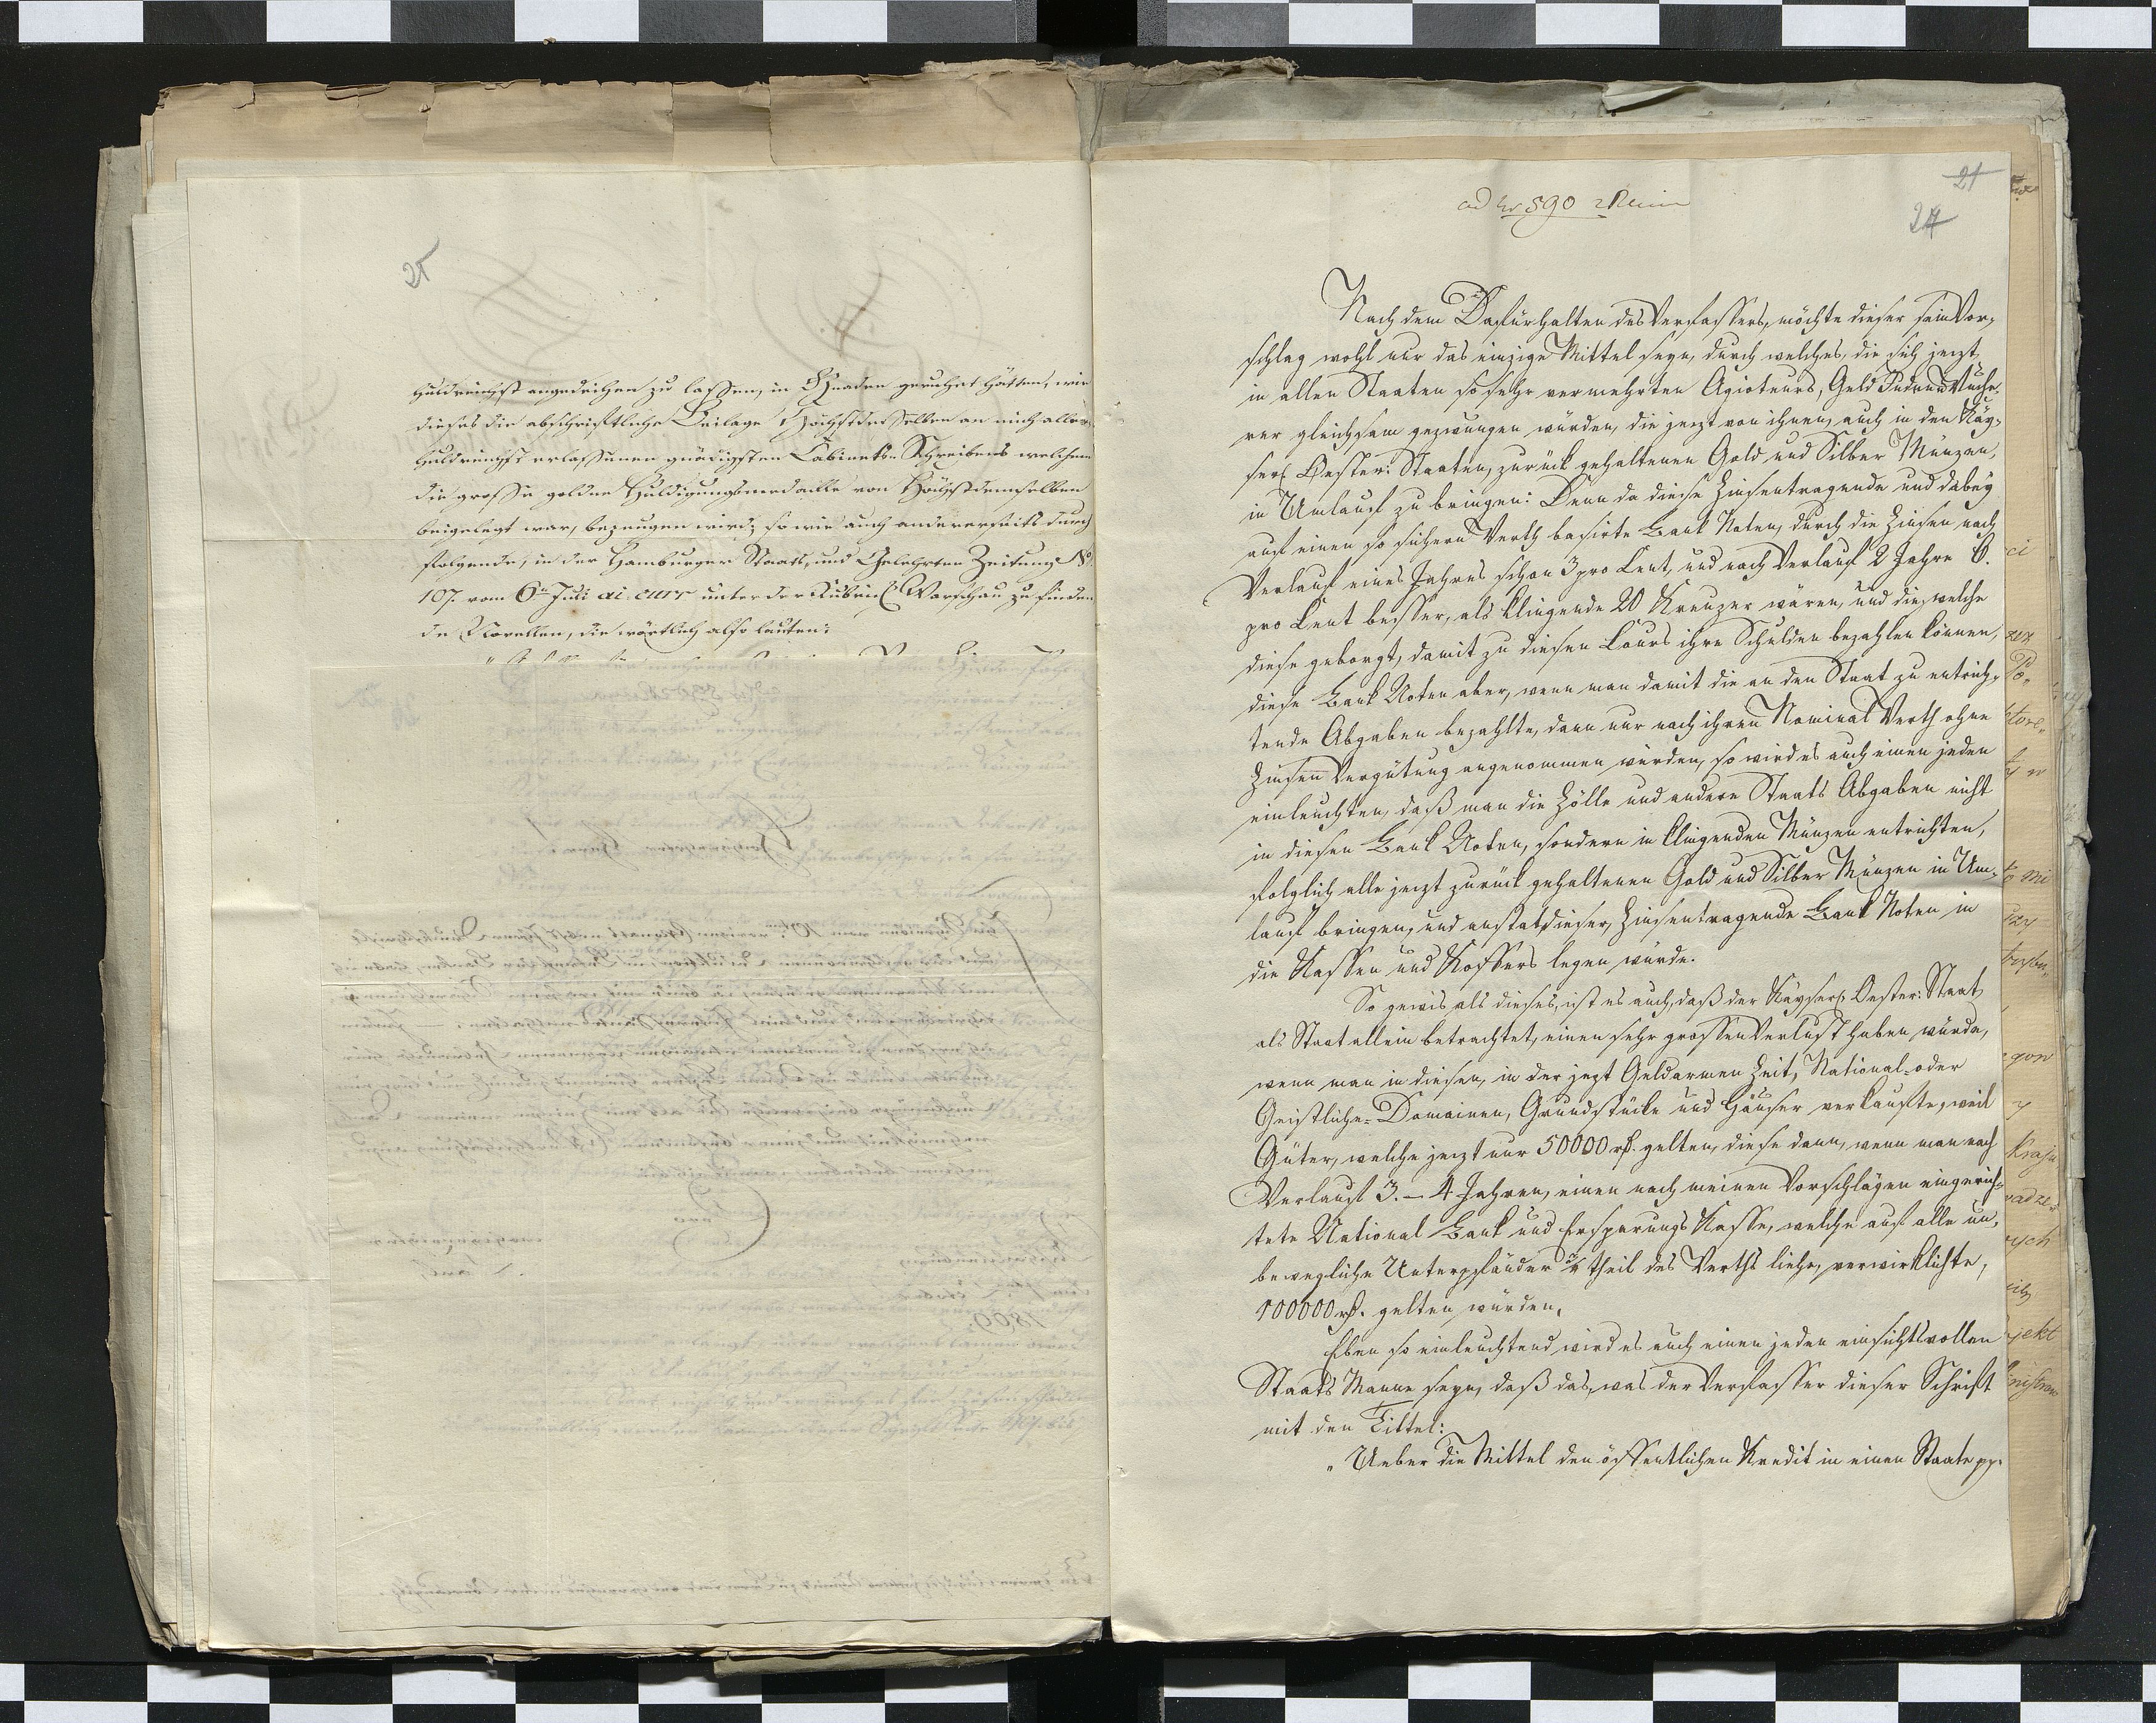 25
huldreichst angedeihen zu lassen, in Gnaden geruhet hätten, wie
dieses die abschriftliche Beilage Höchstderselben an mich aller-
huldreichst erlassenen gnädigsten Cabinets-Schreibens welchem
die grosse goldne Huldigungsmedaille von Höchstdemselben
beigelegt war, bezeugen wird; so wie auch andererseits durch
folgende, in der Hamburger Staats und Gelehrten Zeitung No
107. vom 6n Juli ai. curr unter der Rubric Warschau zu finden
de Novellen, die wörtlich also lauten:
21
ad Nr 590
24
Nach dem Dafürhalten des Verfassers, möchte dieser sein Vor-
schlag wohl nur das einzige Mittel seyn, durch welches, die sich jezt
in allen Staaten so sehr vermehrten Agioteurs, Geld Juden und Wuche-
rer gleichsam gezwungen würden, die jezt von ihnen, auch in den Kay-
serl Oester: Staaten, zurück gehaltenen Gold und Silber Münzen,
in Umlauf zu bringen: Denn da diese Zinsentragende und dabey
auf einen so sichern Werth basirte Bank Noten, durch die Zinsen nach
Verlauf eines Jahres schon 3 pro Cent, und nach Verlauf 2 Jahre 6.
pro Cent besser, als klingende 20 Kreuzer wären, und die, welche
diese geborgt, damit zu diesen Cours ihre Schulden bezahlen können,
diese Bank Noten aber, wenn man damit die an den Staat zu entrich-
tende Abgaben bezahlte, dann nur nach ihren Nominal Werth ohne
Zinsen Vergütung angenommen würden, so wird es auch einen jeden
einleuchten, daß man die Zölle und andere Staats Abgaben nicht
in diesen Bank Noten, sondern in klingenden Münzen entrichten,
folglich alle jezt zurück gehaltenen Gold und Silber Münzen in Um-
lauf bringen, und anstat dieser, Zinsentragende Bank Noten in
die Kassen und Koffers legen würde.
So gewis als dieses, ist es auch, daß der Kayserl Oester: Staat
als Staat allein betrachtet, einen sehr grossen Verlust haben würde,
wenn man in diesen, in der jezt Geldarmen Zeit, National- oder
Geistliche-Domainen, Grundstücke und Häuser verkaufte, weil
Güter, welche jezt nur 50000 rf. gelten, diese dann, wenn man nach
Verlauf 3. - 4 Jahren, einen nach meinen Vorschlägen eingerich-
tete National Bank und Ersparungs Kasse, welche auf alle un-
bewegliche Unterpfänder theil des Werths liehe, verwirklichte,
100000 rf. gelten würden.
Eben so einleuchtend wird es auch einen jeden einsichtsvollen
Staats Manne seyn, daß das, was der Verfasser dieser Schrift
mit den Tittel:
"Ueber die Mittel den öffentlichen Kredit in einen Staate pp.